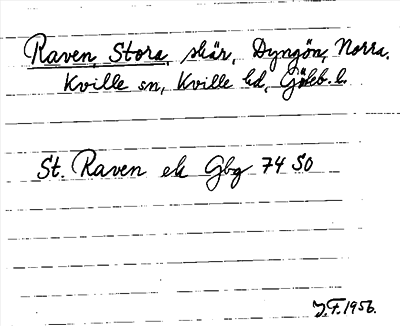 Raven, Stora, skär, Dyngön, Norra,
Kville sn, Kville hd, Göteb. l.
St. Raven ek Gbg 74 SO
J.F. 1956.